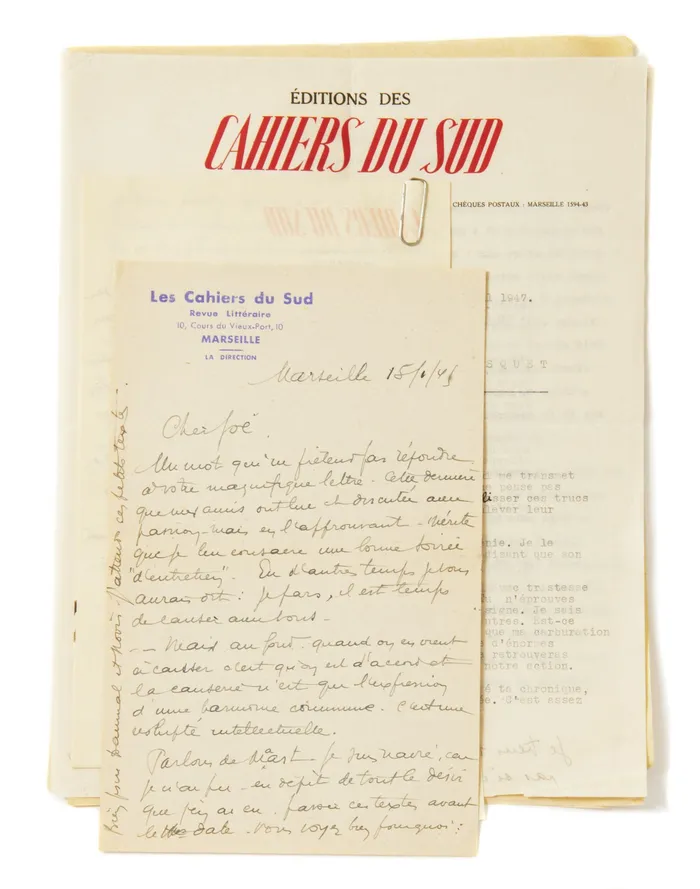 ÉDITIONS DES
CAHIERS DU SUD
CHÈQUES POSTAUX : MARSEILLE 1594-43
1947.
SQUET
Les Cahiers du Sud
Revue Littéraire
10, Cours du Vieux-Port, 10
MARSEILLE
LA DIRECTION
Marseille
Cher Joë.
Un mot qui ne prétend pas répondre
à votre magnifique lettre. Cette dernière
que mes amis ont lue et discutée avec
passion - mais en l'approuvant - mérite
que je lui consacre une bonne soirée
"d'entretien". En d'autres temps je vous
aurais dit : je pars, il est temps
de causer avec vous -
-- Mais au fond quand on en vient
à causer c'est qu'on est d'accord et
la causerie n'est que l'expression
d'une harmonie commune. C'est une
volupté intellectuelle.
Parlons de je suis navré, car
je n'ai pu - en dépit de tout le désir
que j'en ai eu - ces textes avant
date. Vous voyez pourquoi :
pour Daumal et j'attends ces petits textes.
me trans et
ne passe pas
isser ces trucs
lever leur
nie. Je le
disant que son
tristesse
n'éprouves
igne. Je suis
utres. Est-ce
que ma carburation
d'énormes
retrouveras
notre action.
ta chronique,
C'est assez